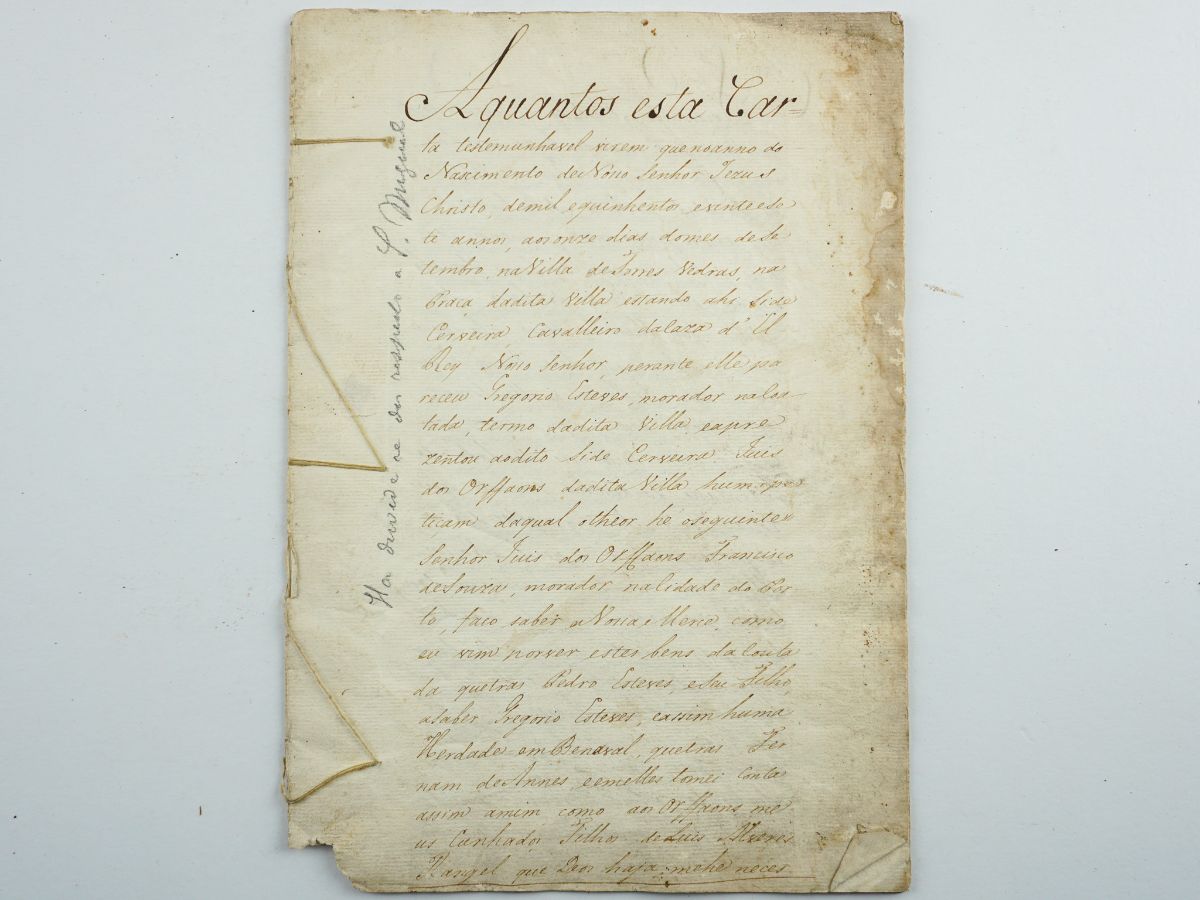 A quantos esta Car=
ta testemunhavel virem que no anno do
Nascimento de Nosso Senhor Jezus
Christo, de mil, e quinhentos, e vinte e se
te annos, aos onze dias do mes de Se
tembro, na Villa de Torres Vedras, na
Praça da dita Villa estando ahi Side
Cerveira, Cavalleiro da Caza d' El
Rey Nosso Senhor, perante elle pa
receu Gregorio Esteves, morador na Cou
tada, termo da dita Villa, e apre
zentou ao dito Side Cerveira Juis
dos Orffaons da dita Villa huma pe
tiçam da qual o theor he o seguinte
Senhor Juis dos Orffaons Francisco
de Souza, morador na Cidade do Por
to, faço saber a Vossa Merce, como
eu vim por ver estes bens da Couta
da que tras Pedro Esteves, e seu Filho,
a saber Gregorio Esteves, e assim huma
Herdade em Benaval, que tras Fer
nam de Annes, e em elles tomei conta
assim a mim como aos Orffaons me
us Cunhados Filhos de Luis Alveres
Rangel que Deos haja; me he neces
Ha duvida se diz respeito a S. Miguel